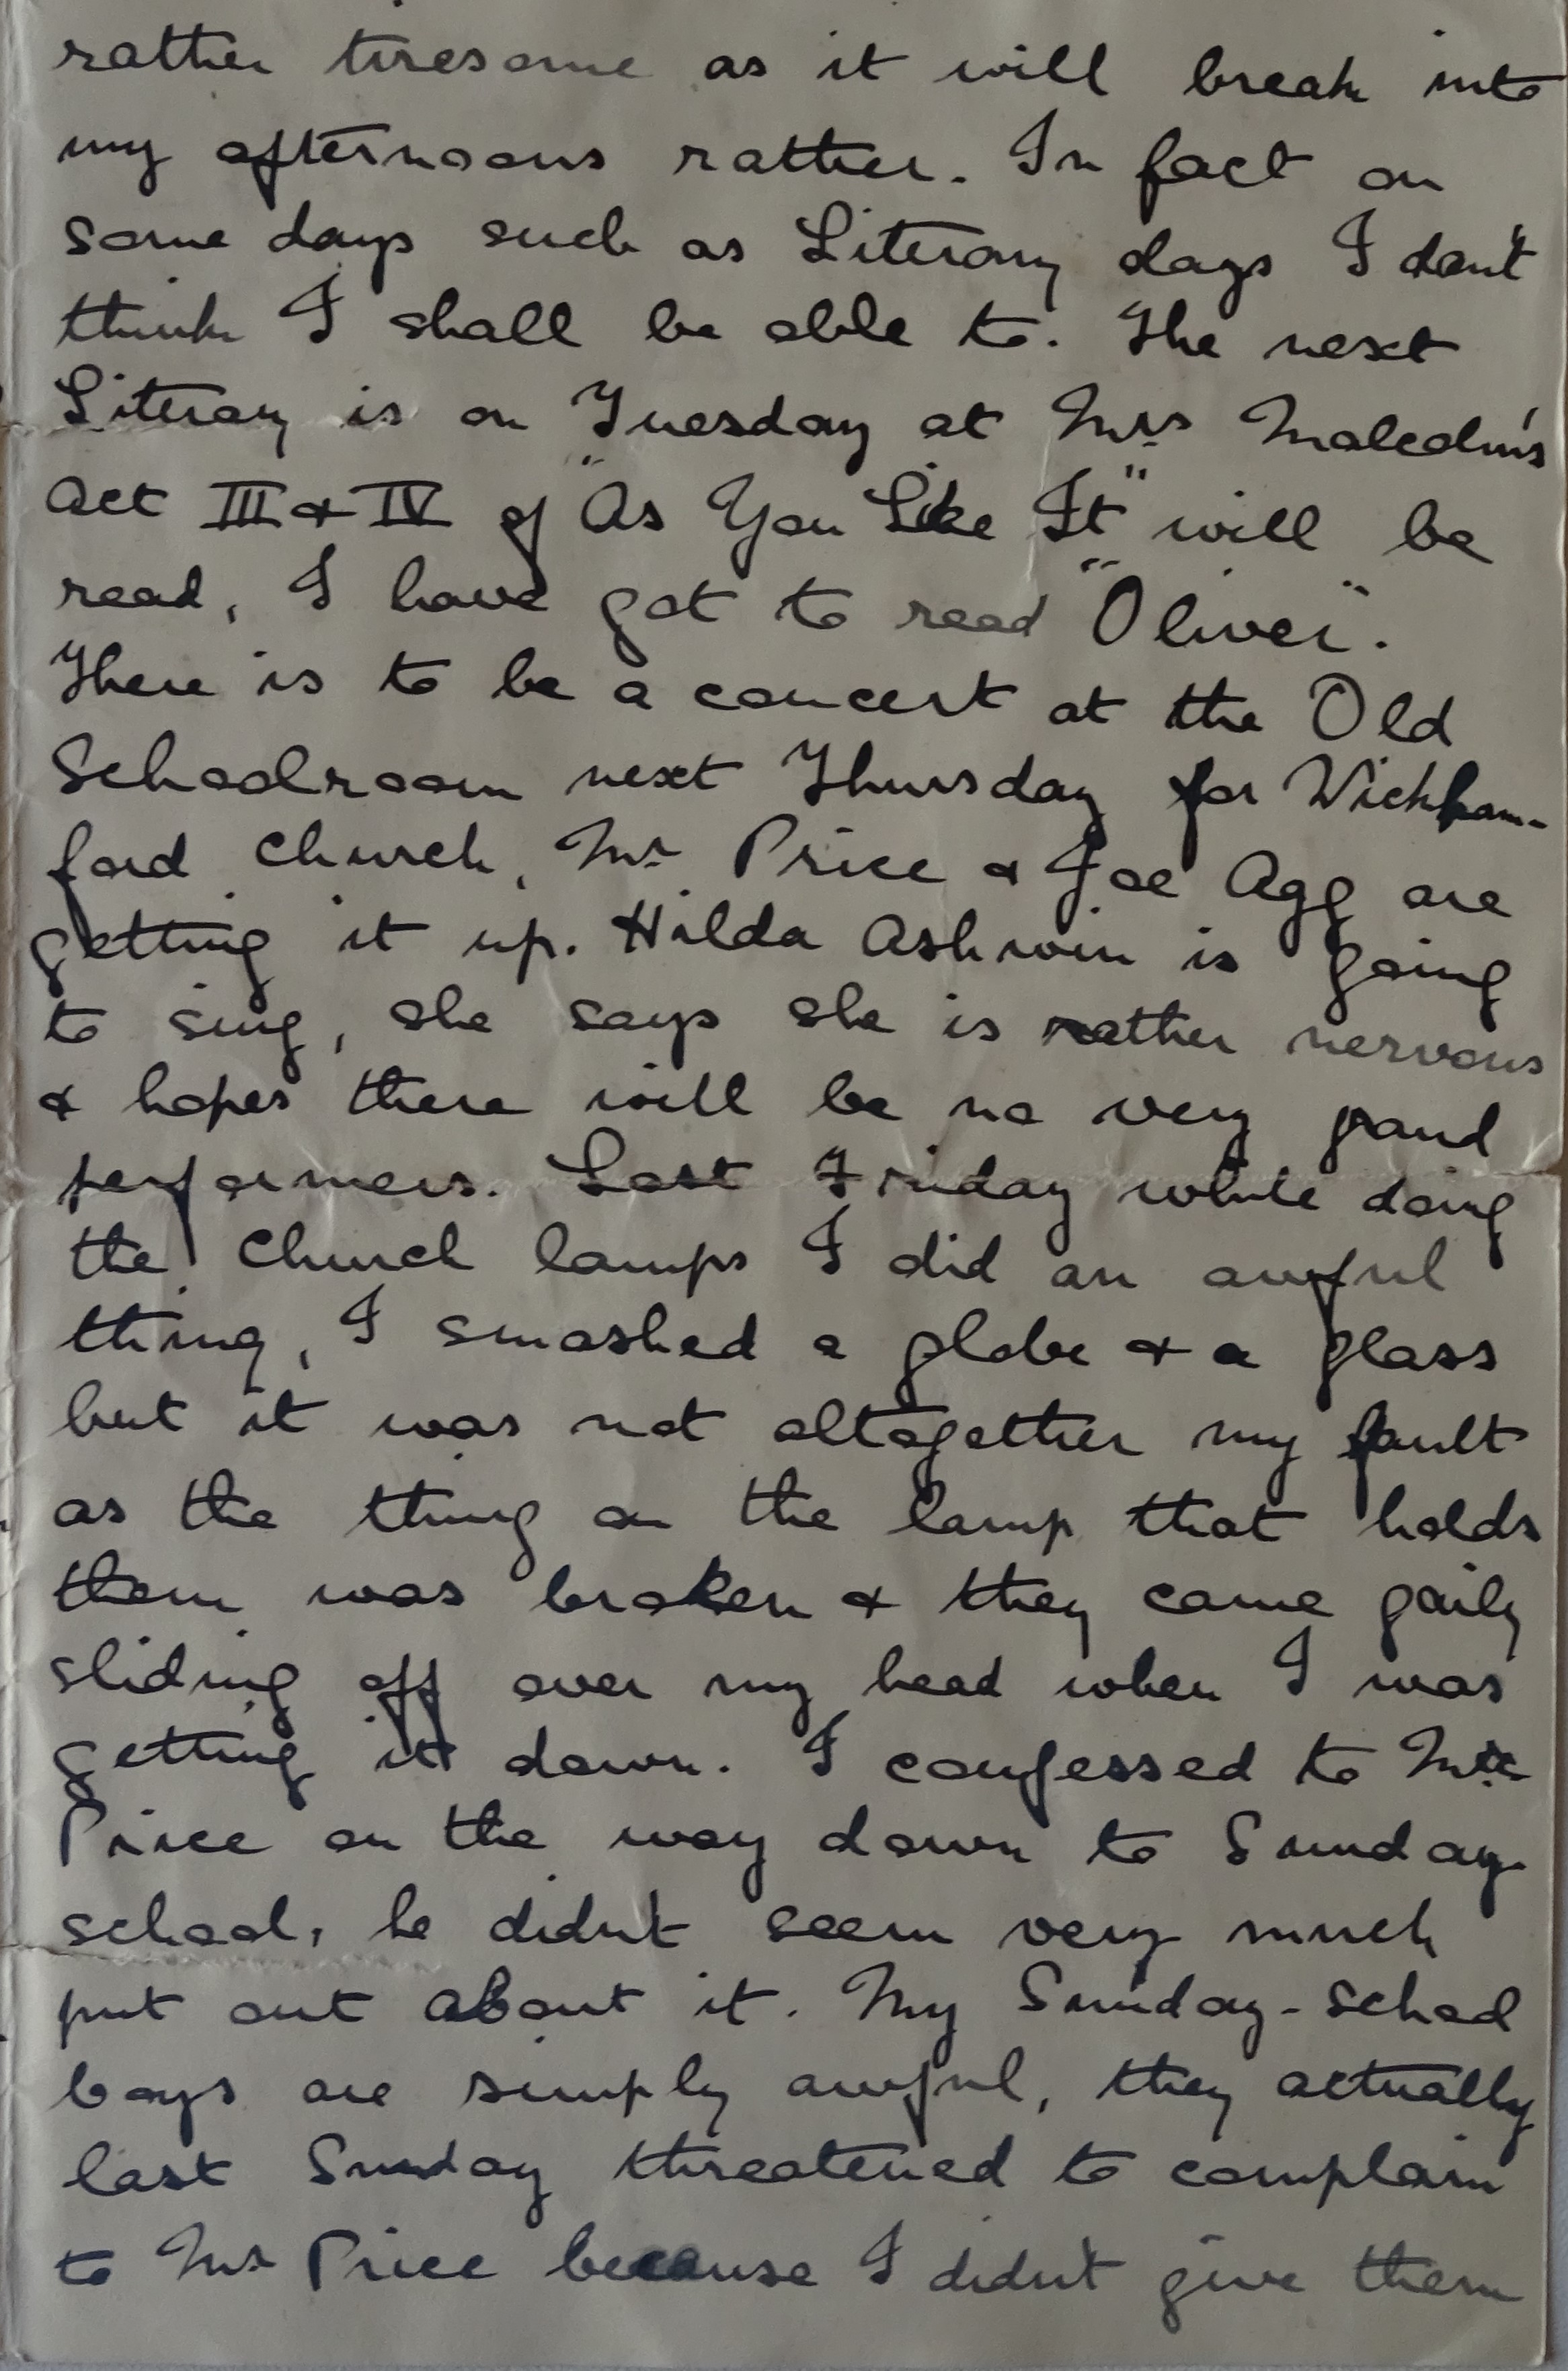 rather tiresome as it will break into
my afternoons rather. In fact on
some days such as Literary days I don't
think I shall be able to. The next
Literary is on Tuesday at Mrs Malcolm's
Act III & IV of "As You Like It" will be
read, I have got to read "Oliver".
There is to be a concert at the Old
Schoolroom next Thursday for Wickham-
ford Church, Mr Price & Joe Agg are
getting it up. Hilda Ashwin is going
to sing, she says she is rather nervous
& hopes there will be no very grand
performers. Last Friday while doing
the Church lamps I did an awful
thing, I smashed a globe & a glass
but it was not altogether my fault
as the thing on the lamp that holds
them was broken & they came gaily
sliding off over my head when I was
getting it down. I confessed to Mr
Price on the way down to Sunday-
school, he didn't seem very much
put out about it. My Sunday-school
boys are simply awful, they actually
last Sunday threatened to complain
to Mr Price because I didn't give them